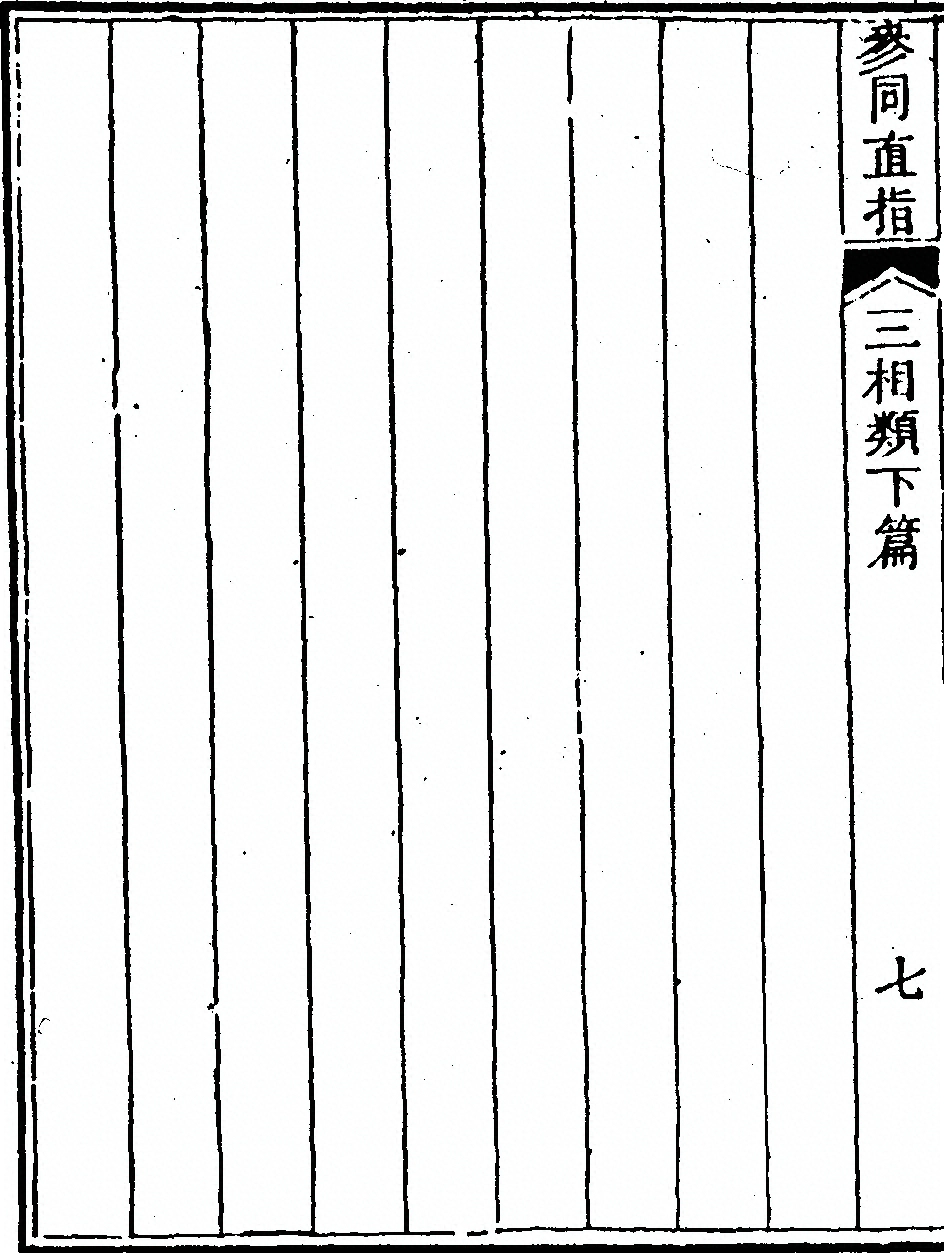 參同直指
三相類下篇
七